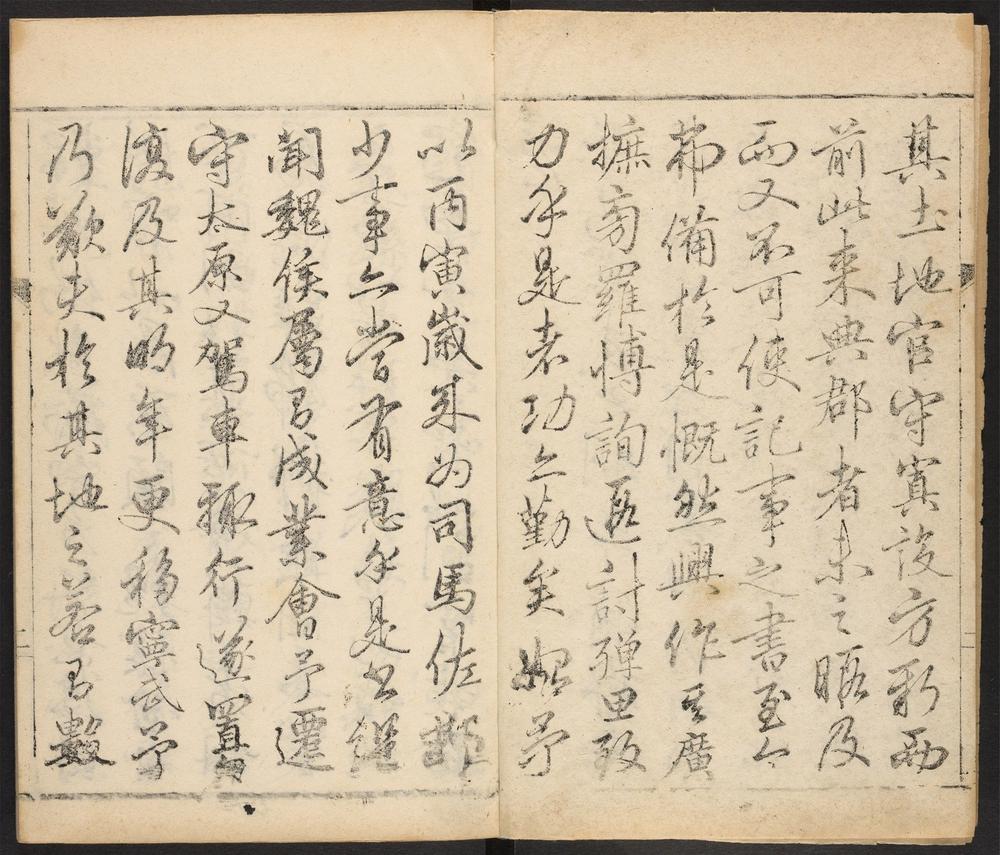 其土地官守寘設方新而
前此来典郡者未之暇及
而又不可使記事之書至今
弗備於是慨然興作其廣
摭旁羅博詢遐討殫思致
力乎是者功亦勤矣始予
以丙寅歳来為司馬佐郡
少事亦嘗有意乎是書繼
聞魏侯屬有成業會予遷
守太原又駕車輙行遂置
復及其明年更移寧武予
乃歎夫於其地之若有數